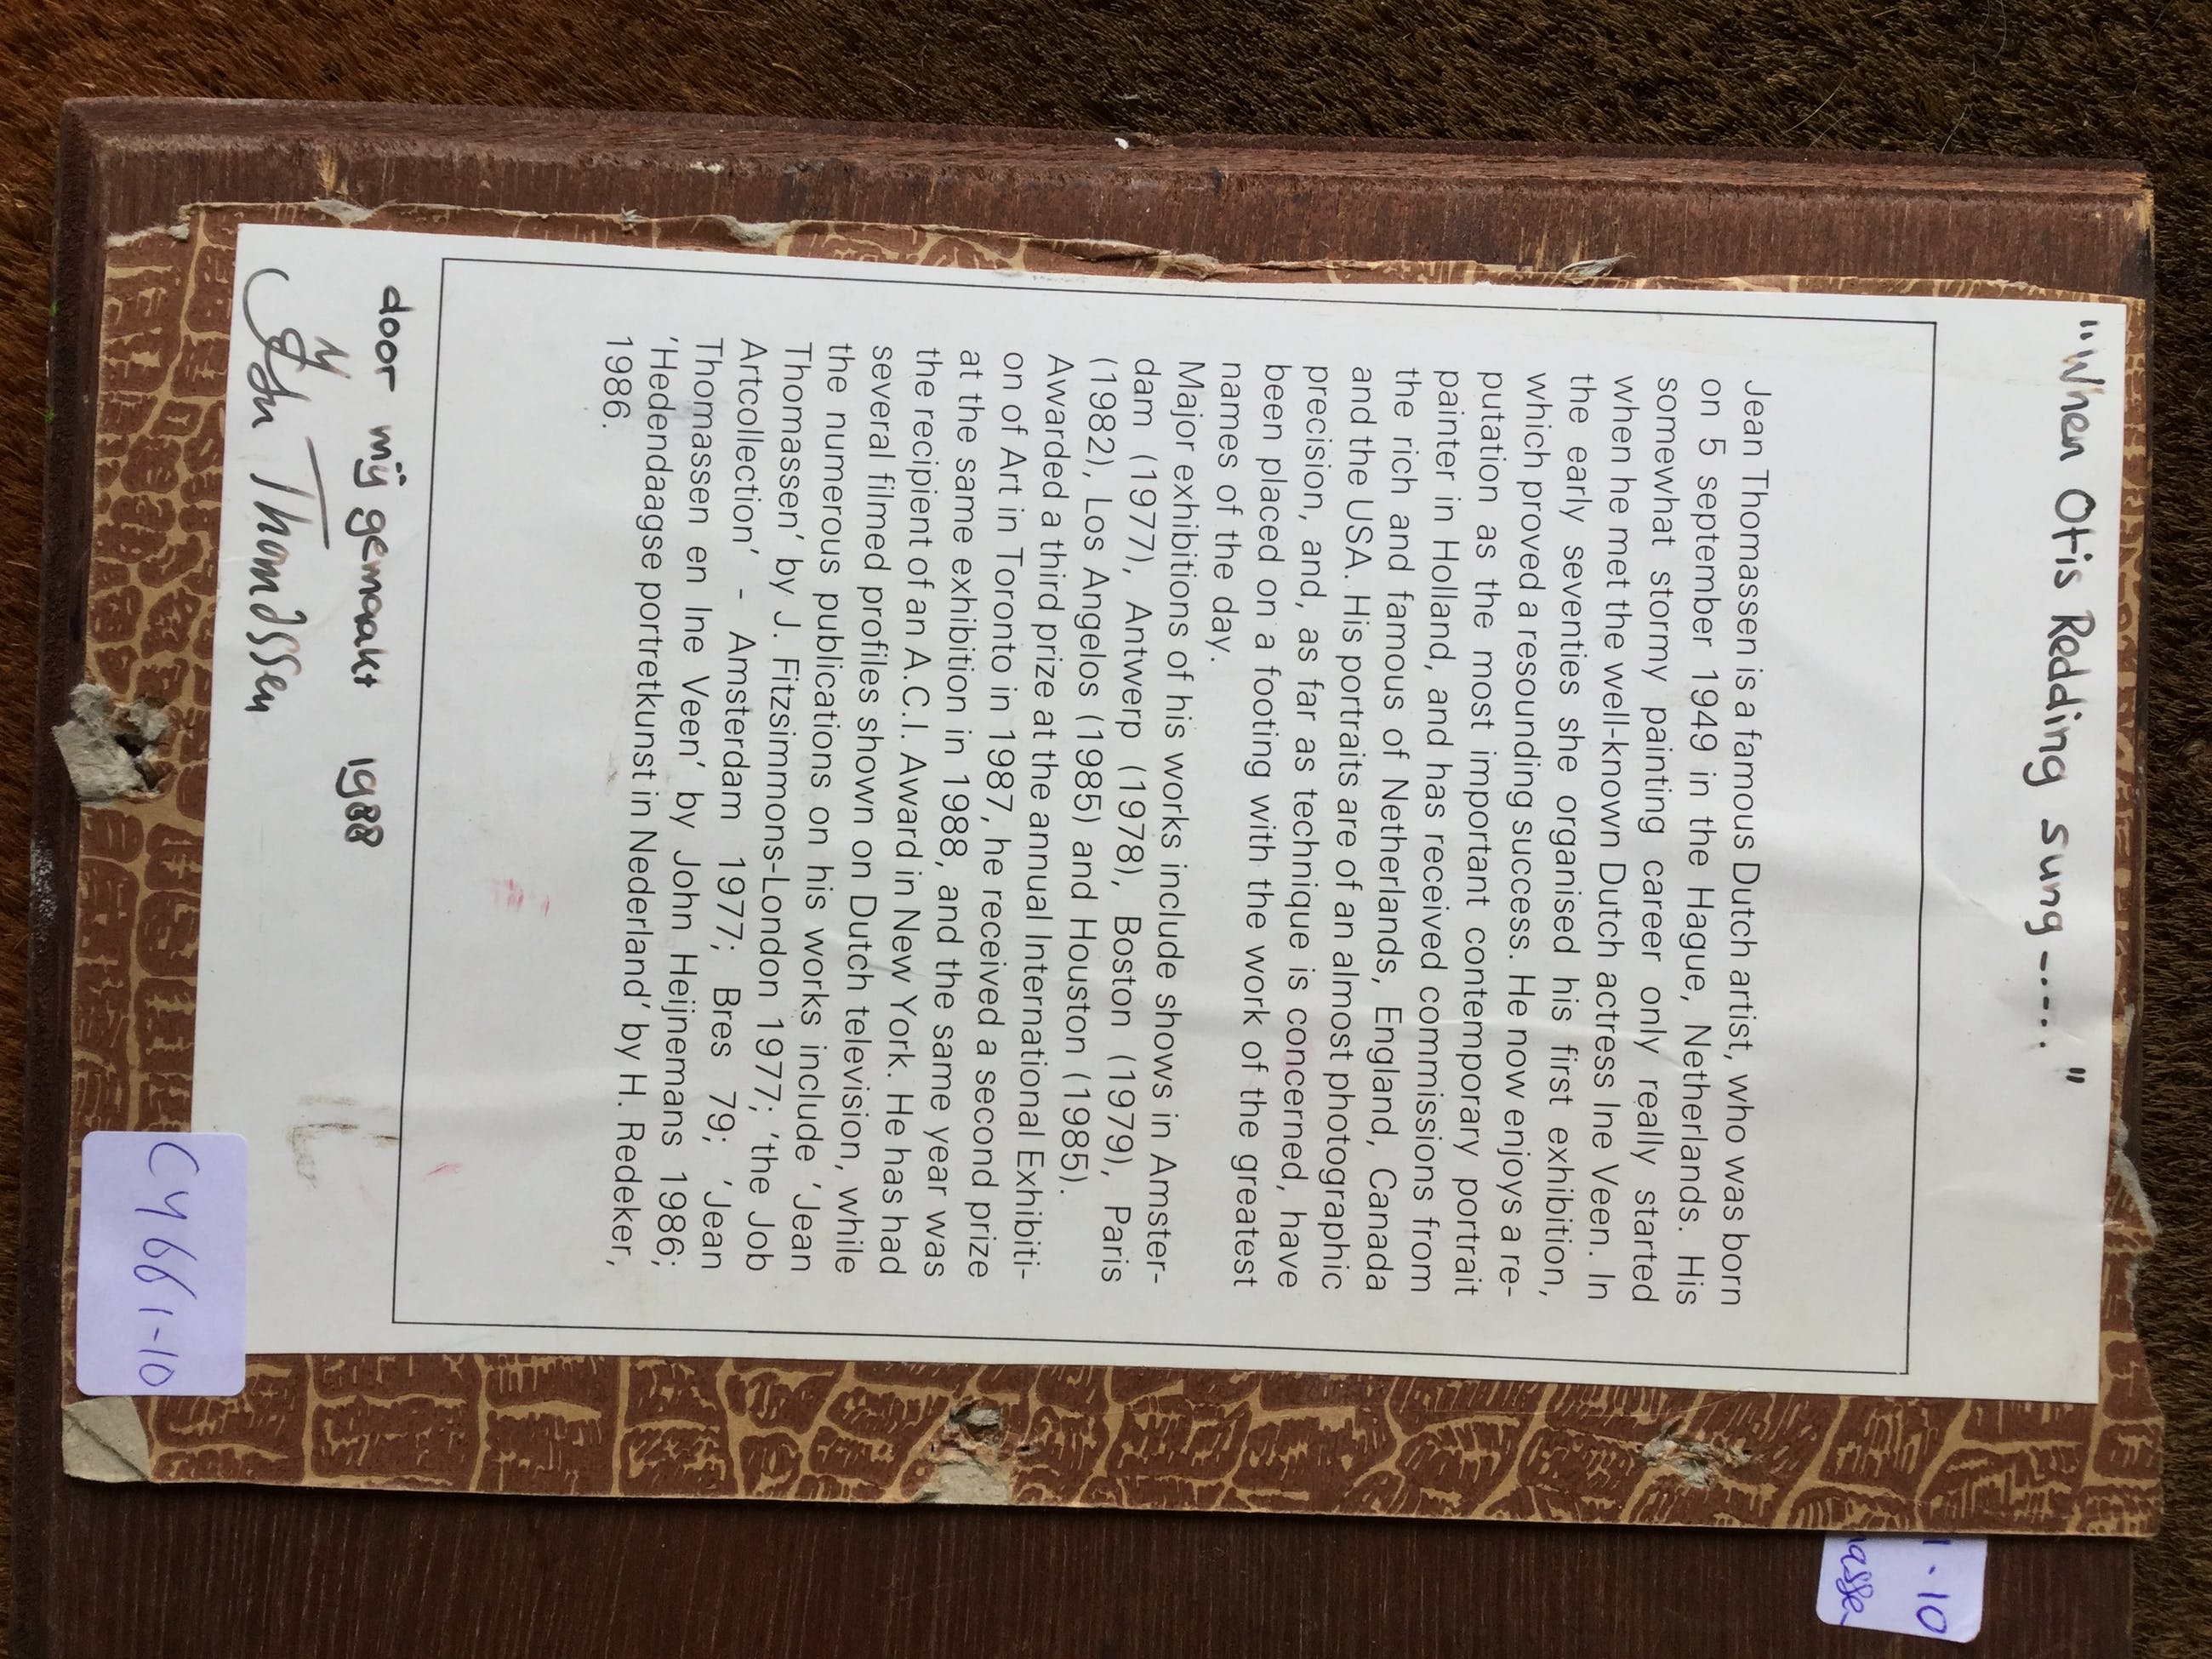 "When Otis Redding sung-...."
Jean Thomassen is a famous Dutch artist, who was born
on 5 september 1949 in the Hague, Netherlands. His
somewhat stormy painting career only really started
when he met the well-known Dutch actress Ine Veen. In
the early seventies she organised his first exhibition,
which proved a resounding success. He now enjoys a re-
putation as the most important contemporary portrait
painter in Holland, and has received commissions from
the rich and famous of Netherlands, England, Canada
and the USA. His portraits are of an almost photographic
precision, and, as far as technique is concerned, have
been placed on a footing with the work of the greatest
names of the day.
Major exhibitions of his works include shows in Amster-
dam (1977), Antwerp (1978), Boston (1979), Paris
(1982), Los Angelos (1985) and Houston (1985).
Awarded a third prize at the annual International Exhibiti-
on of Art in Toronto in 1987, he received a second prize
at the same exhibition in 1988, and the same year was
the recipient of an A.C.I. Award in New York. He has had
several filmed profiles shown on Dutch television, while
the numerous publications on his works include 'Jean
Thomassen' by J. Fitzsimmons-London 1977; 'the Job
Artcollection' - Amsterdam 1977; Bres 79; 'Jean
Thomassen en Ine Veen' by John Heijnemans 1986;
'Hedendaagse portretkunst in Nederland' by H. Redeker,
1986.
door mij gemaakt 1988
Thomassen
C4661-10
1-10